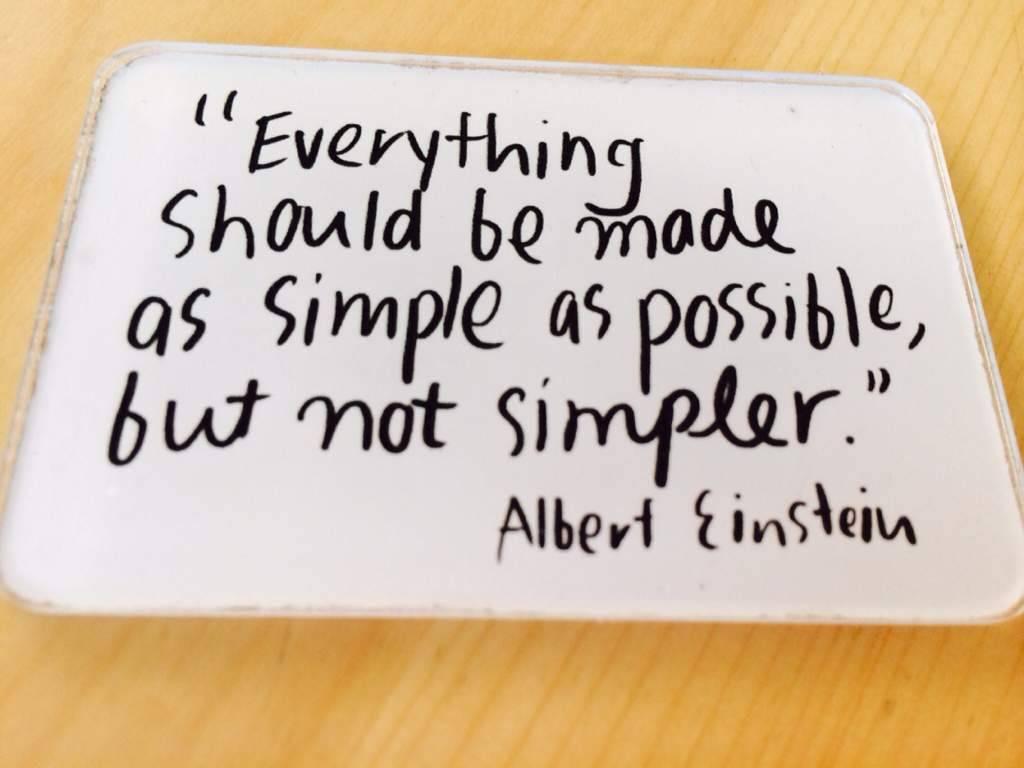 "Everything
should be made
as simple as possible,
but not simpler."
Albert Einstein